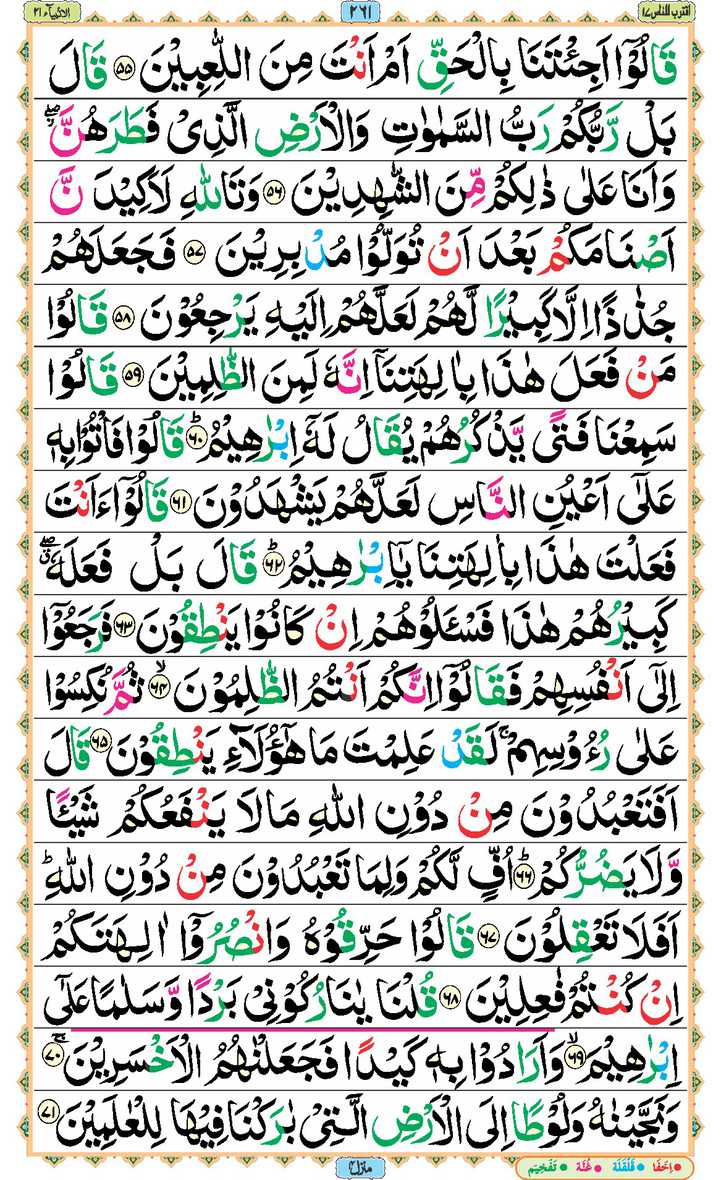 اقترب للناس ١٧ ٢٦١ الانبيآء ٢١
قَالُوْۤا اَجِئْتَنَا بِالْحَقِّ اَمْ اَنْتَ مِنَ اللّٰعِبِيْنَ ۝٥٥ قَالَ
بَلْ رَّبُّكُمْ رَبُّ السَّمٰوٰتِ وَالْاَرْضِ الَّذِىْ فَطَرَهُنَّ ۖ٘
وَاَنَا عَلٰى ذٰلِكُمْ مِّنَ الشّٰهِدِيْنَ ۝٥٦ وَتَاللّٰهِ لَاَكِيْدَنَّ
اَصْنَامَكُمْ بَعْدَ اَنْ تُوَلُّوْا مُدْبِرِيْنَ ۝٥٧ فَجَعَلَهُمْ
جُذٰذًا اِلَّا كَبِيْرًا لَّهُمْ لَعَلَّهُمْ اِلَيْهِ يَرْجِعُوْنَ ۝٥٨ قَالُوْا
مَنْ فَعَلَ هٰذَا بِاٰلِهَتِنَاۤ اِنَّهٗ لَمِنَ الظّٰلِمِيْنَ ۝٥٩ قَالُوْا
سَمِعْنَا فَتًى يَّذْكُرُهُمْ يُقَالُ لَهٗۤ اِبْرٰهِيْمُ ؕ ۝٦٠ قَالُوْا فَاْتُوْا بِهٖ
عَلٰۤى اَعْيُنِ النَّاسِ لَعَلَّهُمْ يَشْهَدُوْنَ ۝٦١ قَالُوْۤا ءَاَنْتَ
فَعَلْتَ هٰذَا بِاٰلِهَتِنَا يٰۤاِبْرٰهِيْمُ ؕ ۝٦٢ قَالَ بَلْ فَعَلَهٗ ۖۗ
كَبِيْرُهُمْ هٰذَا فَسْـَٔلُوْهُمْ اِنْ كَانُوْا يَنْطِقُوْنَ ۝٦٣ فَرَجَعُوْۤا
اِلٰۤى اَنْفُسِهِمْ فَقَالُوْۤا اِنَّكُمْ اَنْتُمُ الظّٰلِمُوْنَ ۙ ۝٦٤ ثُمَّ نُكِسُوْا
عَلٰى رُءُوْسِهِمْ ۚ لَقَدْ عَلِمْتَ مَا هٰۤؤُلَآءِ يَنْطِقُوْنَ ۝٦٥ قَالَ
اَفَتَعْبُدُوْنَ مِنْ دُوْنِ اللّٰهِ مَا لَا يَنْفَعُكُمْ شَيْـًٔا
وَّلَا يَضُرُّكُمْ ؕ ۝٦٦ اُفٍّ لَّكُمْ وَلِمَا تَعْبُدُوْنَ مِنْ دُوْنِ اللّٰهِ ؕ
اَفَلَا تَعْقِلُوْنَ ۝٦٧ قَالُوْا حَرِّقُوْهُ وَانْصُرُوْۤا اٰلِهَتَكُمْ
اِنْ كُنْتُمْ فٰعِلِيْنَ ۝٦٨ قُلْنَا يٰنَارُ كُوْنِىْ بَرْدًا وَّسَلٰمًا عَلٰۤى
اِبْرٰهِيْمَ ۙ ۝٦٩ وَاَرَادُوْا بِهٖ كَيْدًا فَجَعَلْنٰهُمُ الْاَخْسَرِيْنَ ۚ ۝٧٠
وَنَجَّيْنٰهُ وَلُوْطًا اِلَى الْاَرْضِ الَّتِىْ بٰرَكْنَا فِيْهَا لِلْعٰلَمِيْنَ ۝٧١
منزل ٤ اِخْفَا قَلْقَلَة غُنَّة تَفْخِيْم